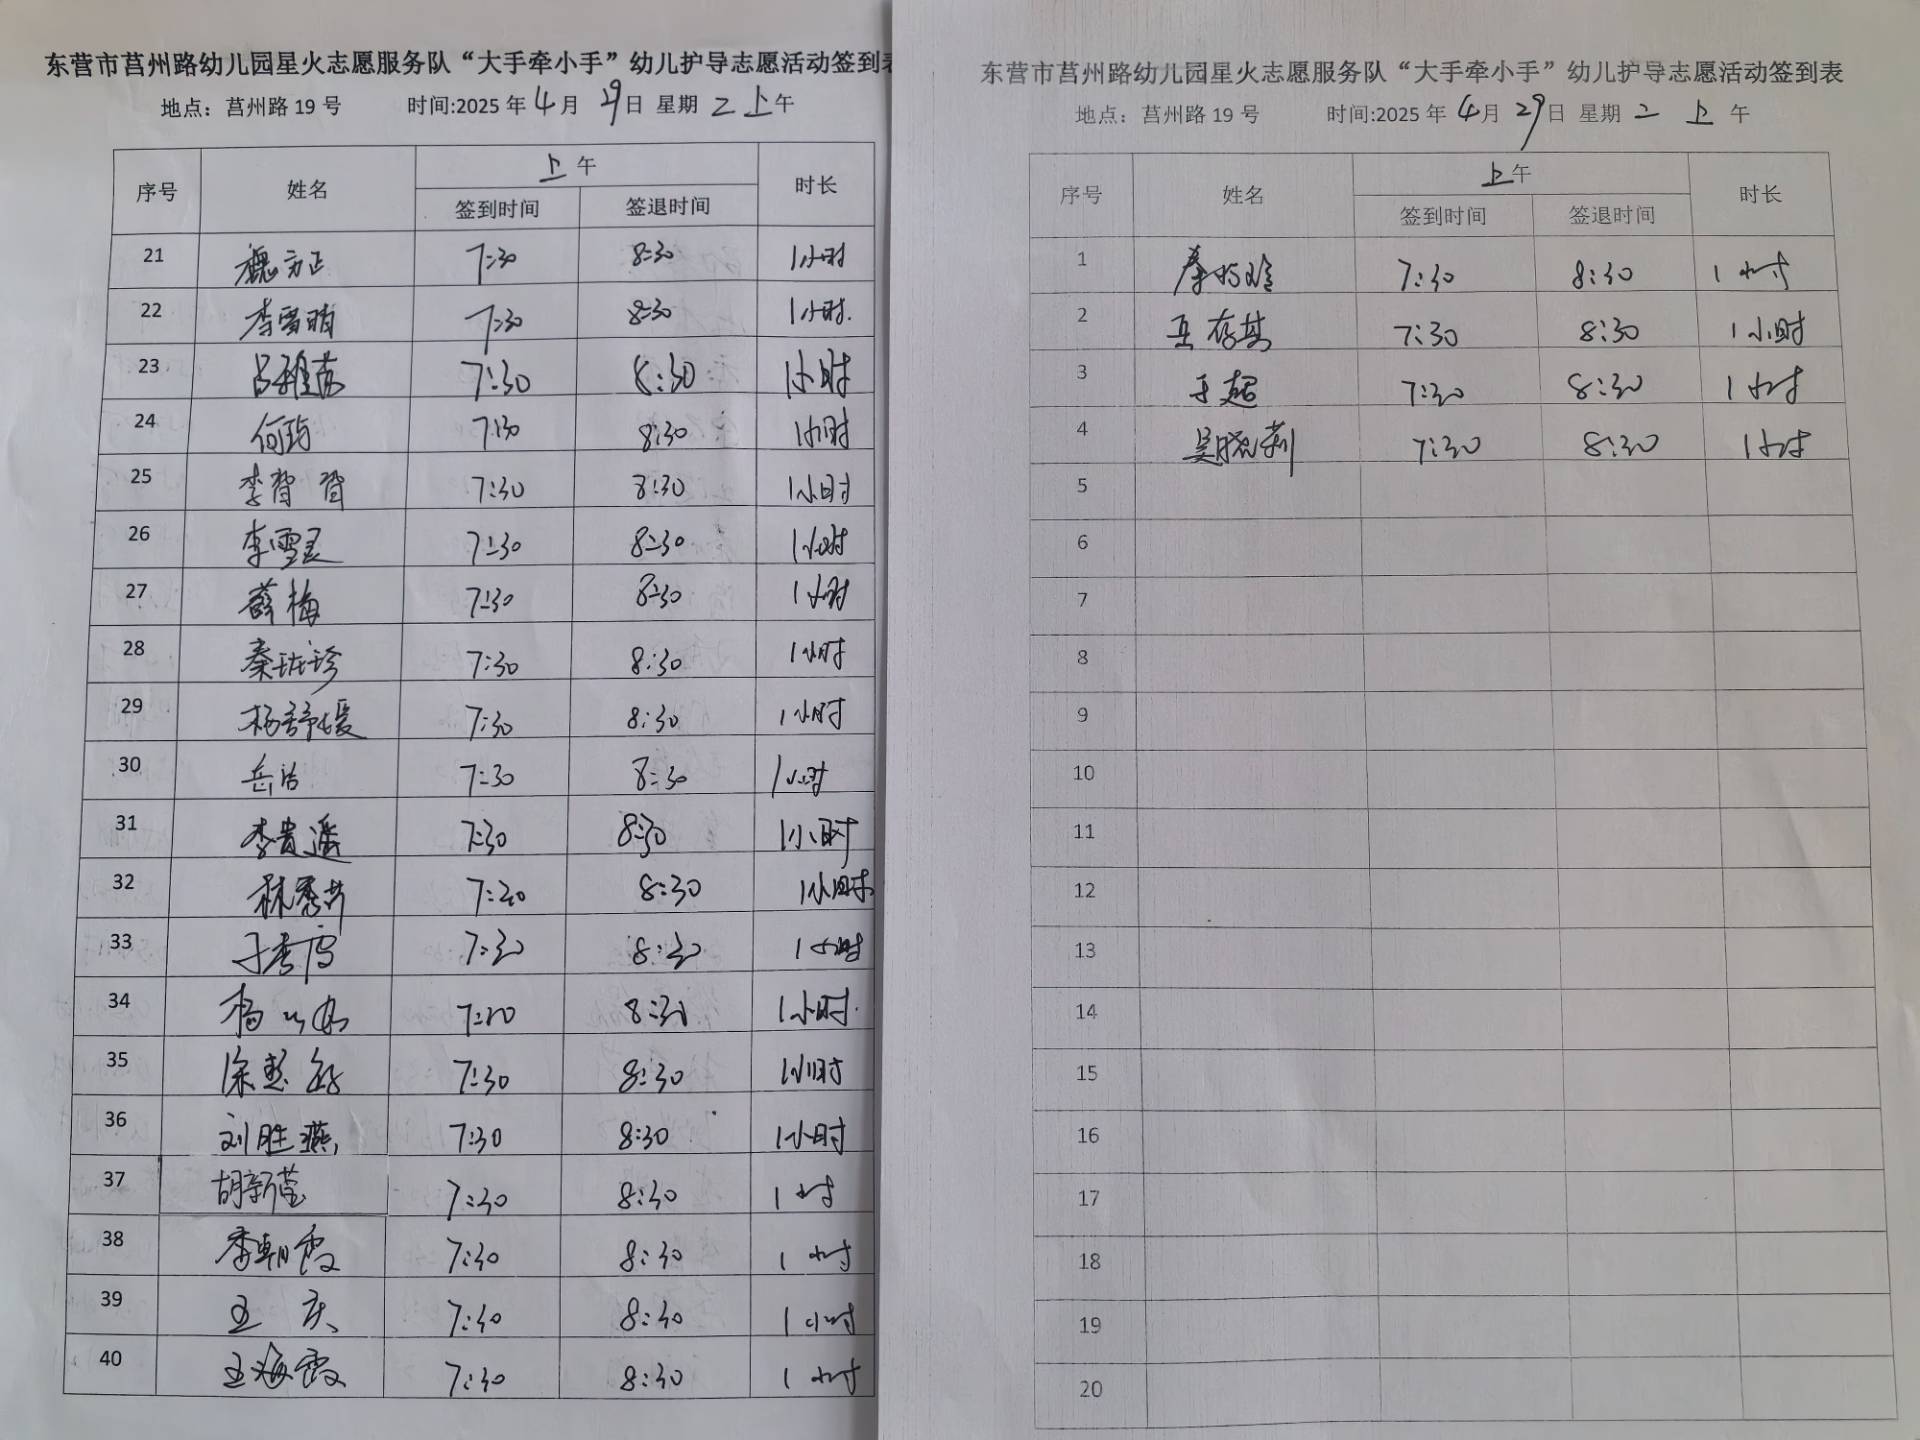 东营市莒州路幼儿园星火志愿服务队“大手牵小手”幼儿护导志愿活动签到表
地点：莒州路 19 号 时间:2025 年 4 月 29 日 星期 二 上午
序号 姓名 上午 时长
签到时间 签退时间
21 魏方正 7:30 8:30 1小时
22 李雪明 7:30 8:30 1小时.
23 吕雅茹 7:30 8:30 1小时
24 何玮 7:30 8:30 1小时
25 李贤贤 7:30 8:30 1小时
26 李雪灵 7:30 8:30 1小时
27 薛梅 7:30 8:30 1小时
28 秦珑珍 7:30 8:30 1小时
29 杨舒媛 7:30 8:30 1小时
30 岳洁 7:30 8:30 1小时
31 李贵遥 7:30 8:30 1小时
32 林秀芹 7:20 8:30 1小时
33 7:30 8:30 1小时
34 杨 7:20 8:30 1小时.
35 徐慧 7:30 8:30 1小时
36 刘胜燕 7:30 8:30 1小时
37 胡新莹 7:30 8:30 1小时
38 李朝霞 7:30 8:30 1小时
39 王庆 7:30 8:30 1小时
40 王海霞 7:30 8:30 1小时
东营市莒州路幼儿园星火志愿服务队“大手牵小手”幼儿护导志愿活动签到表
地点：莒州路 19 号 时间:2025 年 4 月 29 日 星期 二 上 午
序号 姓名 上午 时长
签到时间 签退时间
1 秦 7:30 8:30 1小时
2 王存基 7:30 8:30 1小时
3 于超 7:30 8:30 1小时
4 吴晓莉 7:30 8:30 1小时
5
6
7
8
9
10
11
12
13
14
15
16
17
18
19
20